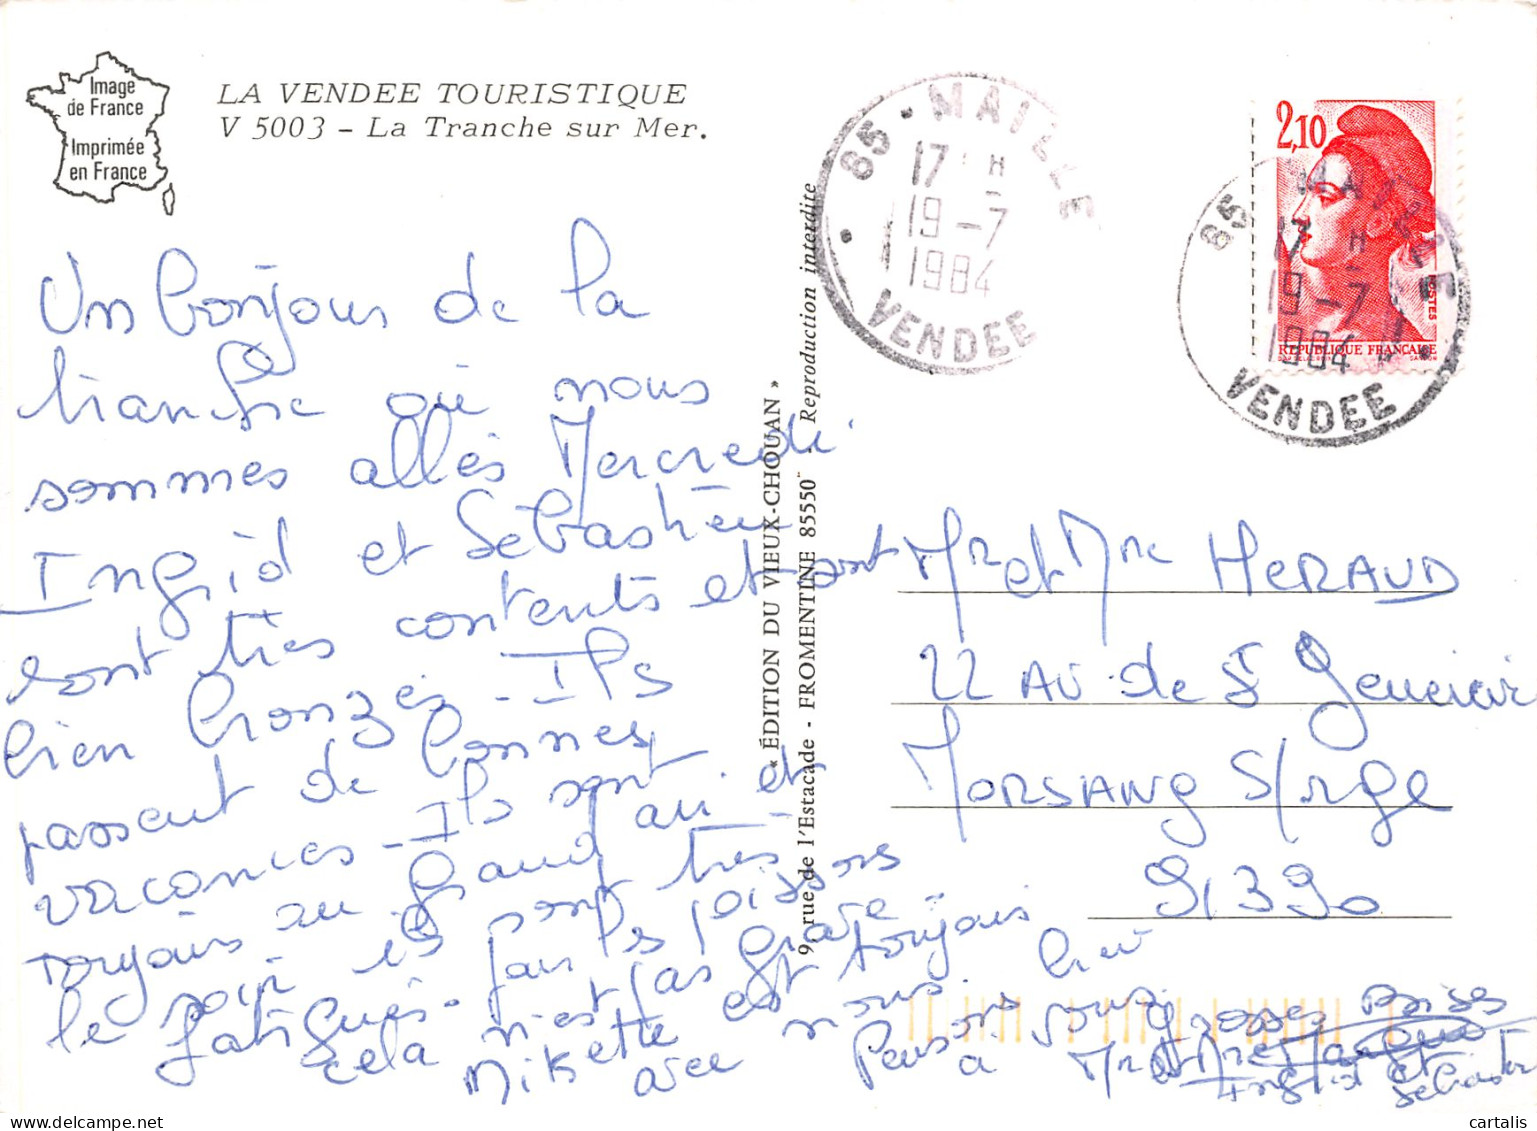 Image
de France
Imprimée
en France
LA VENDEE TOURISTIQUE
V 5003 - La Tranche sur Mer.
85 · MAILLE
17 H
19-7
1984
VENDEE
2,10
POSTES
REPUBLIQUE FRANÇAISE
85 MAILLE
17 H
19-7
1984
VENDEE
« ÉDITION DU VIEUX-CHOUAN »
9, rue de l'Estacade - FROMENTINE 85550 - Reproduction interdite
Un bonjour de la
tranche où nous
sommes allés Mercredi.
Ingrid et Sébastien
sont très contents et sont
bien bronzés - Ils
passent de bonnes
vacances - Ils sont
toujours au grand air et
le soir ils sont très
fatigués - les poissons
cela n'est pas grave
Mikette est toujours
avec nous.
Pensons bien
à vous
Grosses Bises
Ingrid et
Sébastien
Mr et Mme HERAUD
22 AV de St Genevièv
MORSANG S/orge
91390
www.cartalis.com